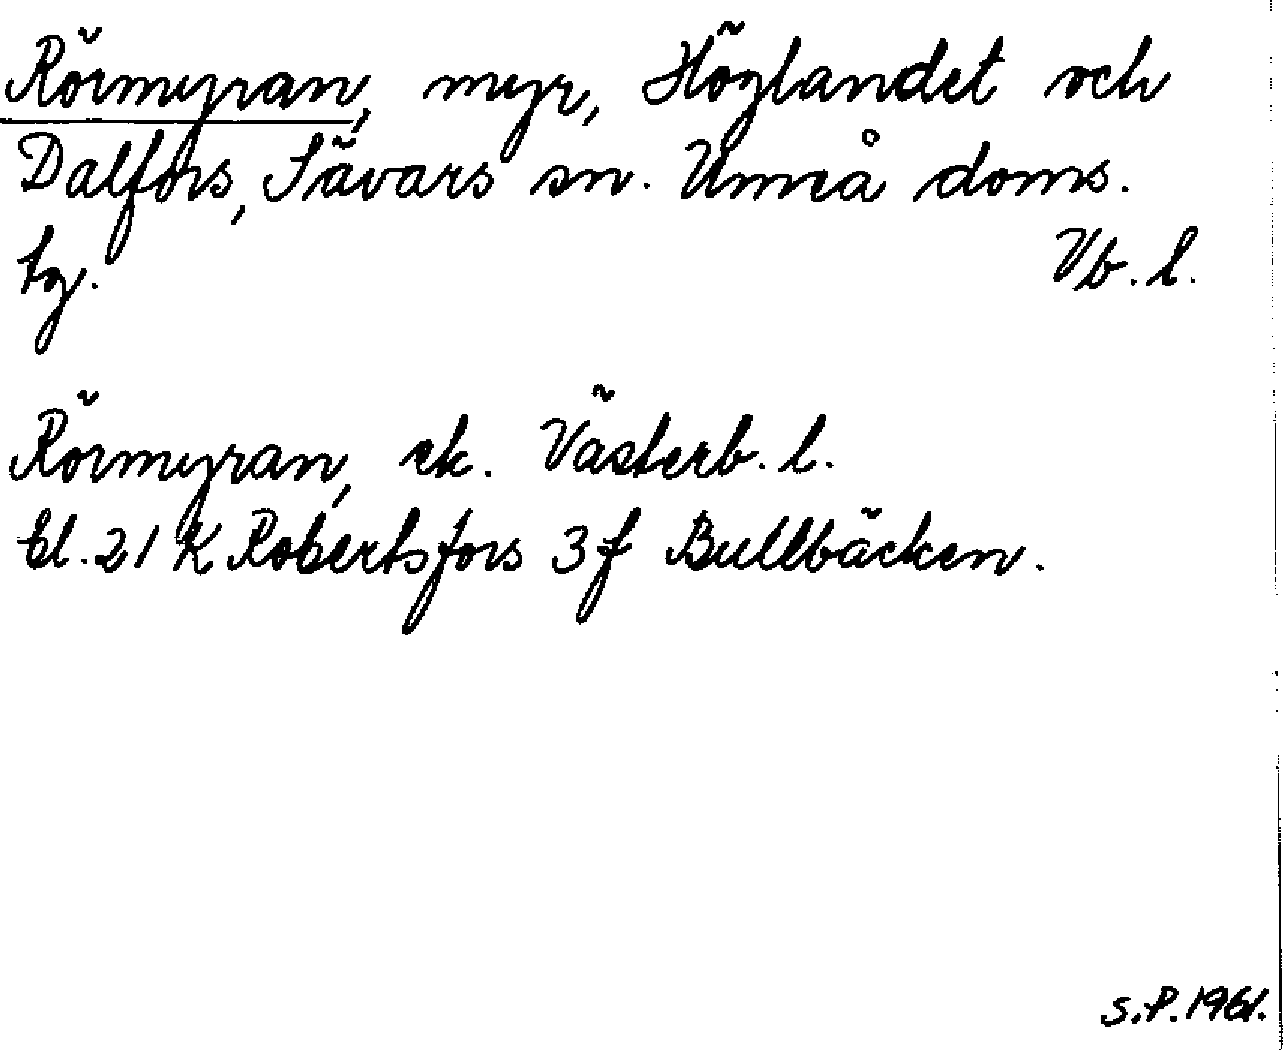 Rörmyran, myr, Höglandet och
Dalfors, Sävars sn. Umeå doms.
tg. Vb. l.
Rörmyran, ek. Västerb. l.
bl. 21 K Robertsfors 3 f Bullbäcken.
S.P. 1961.